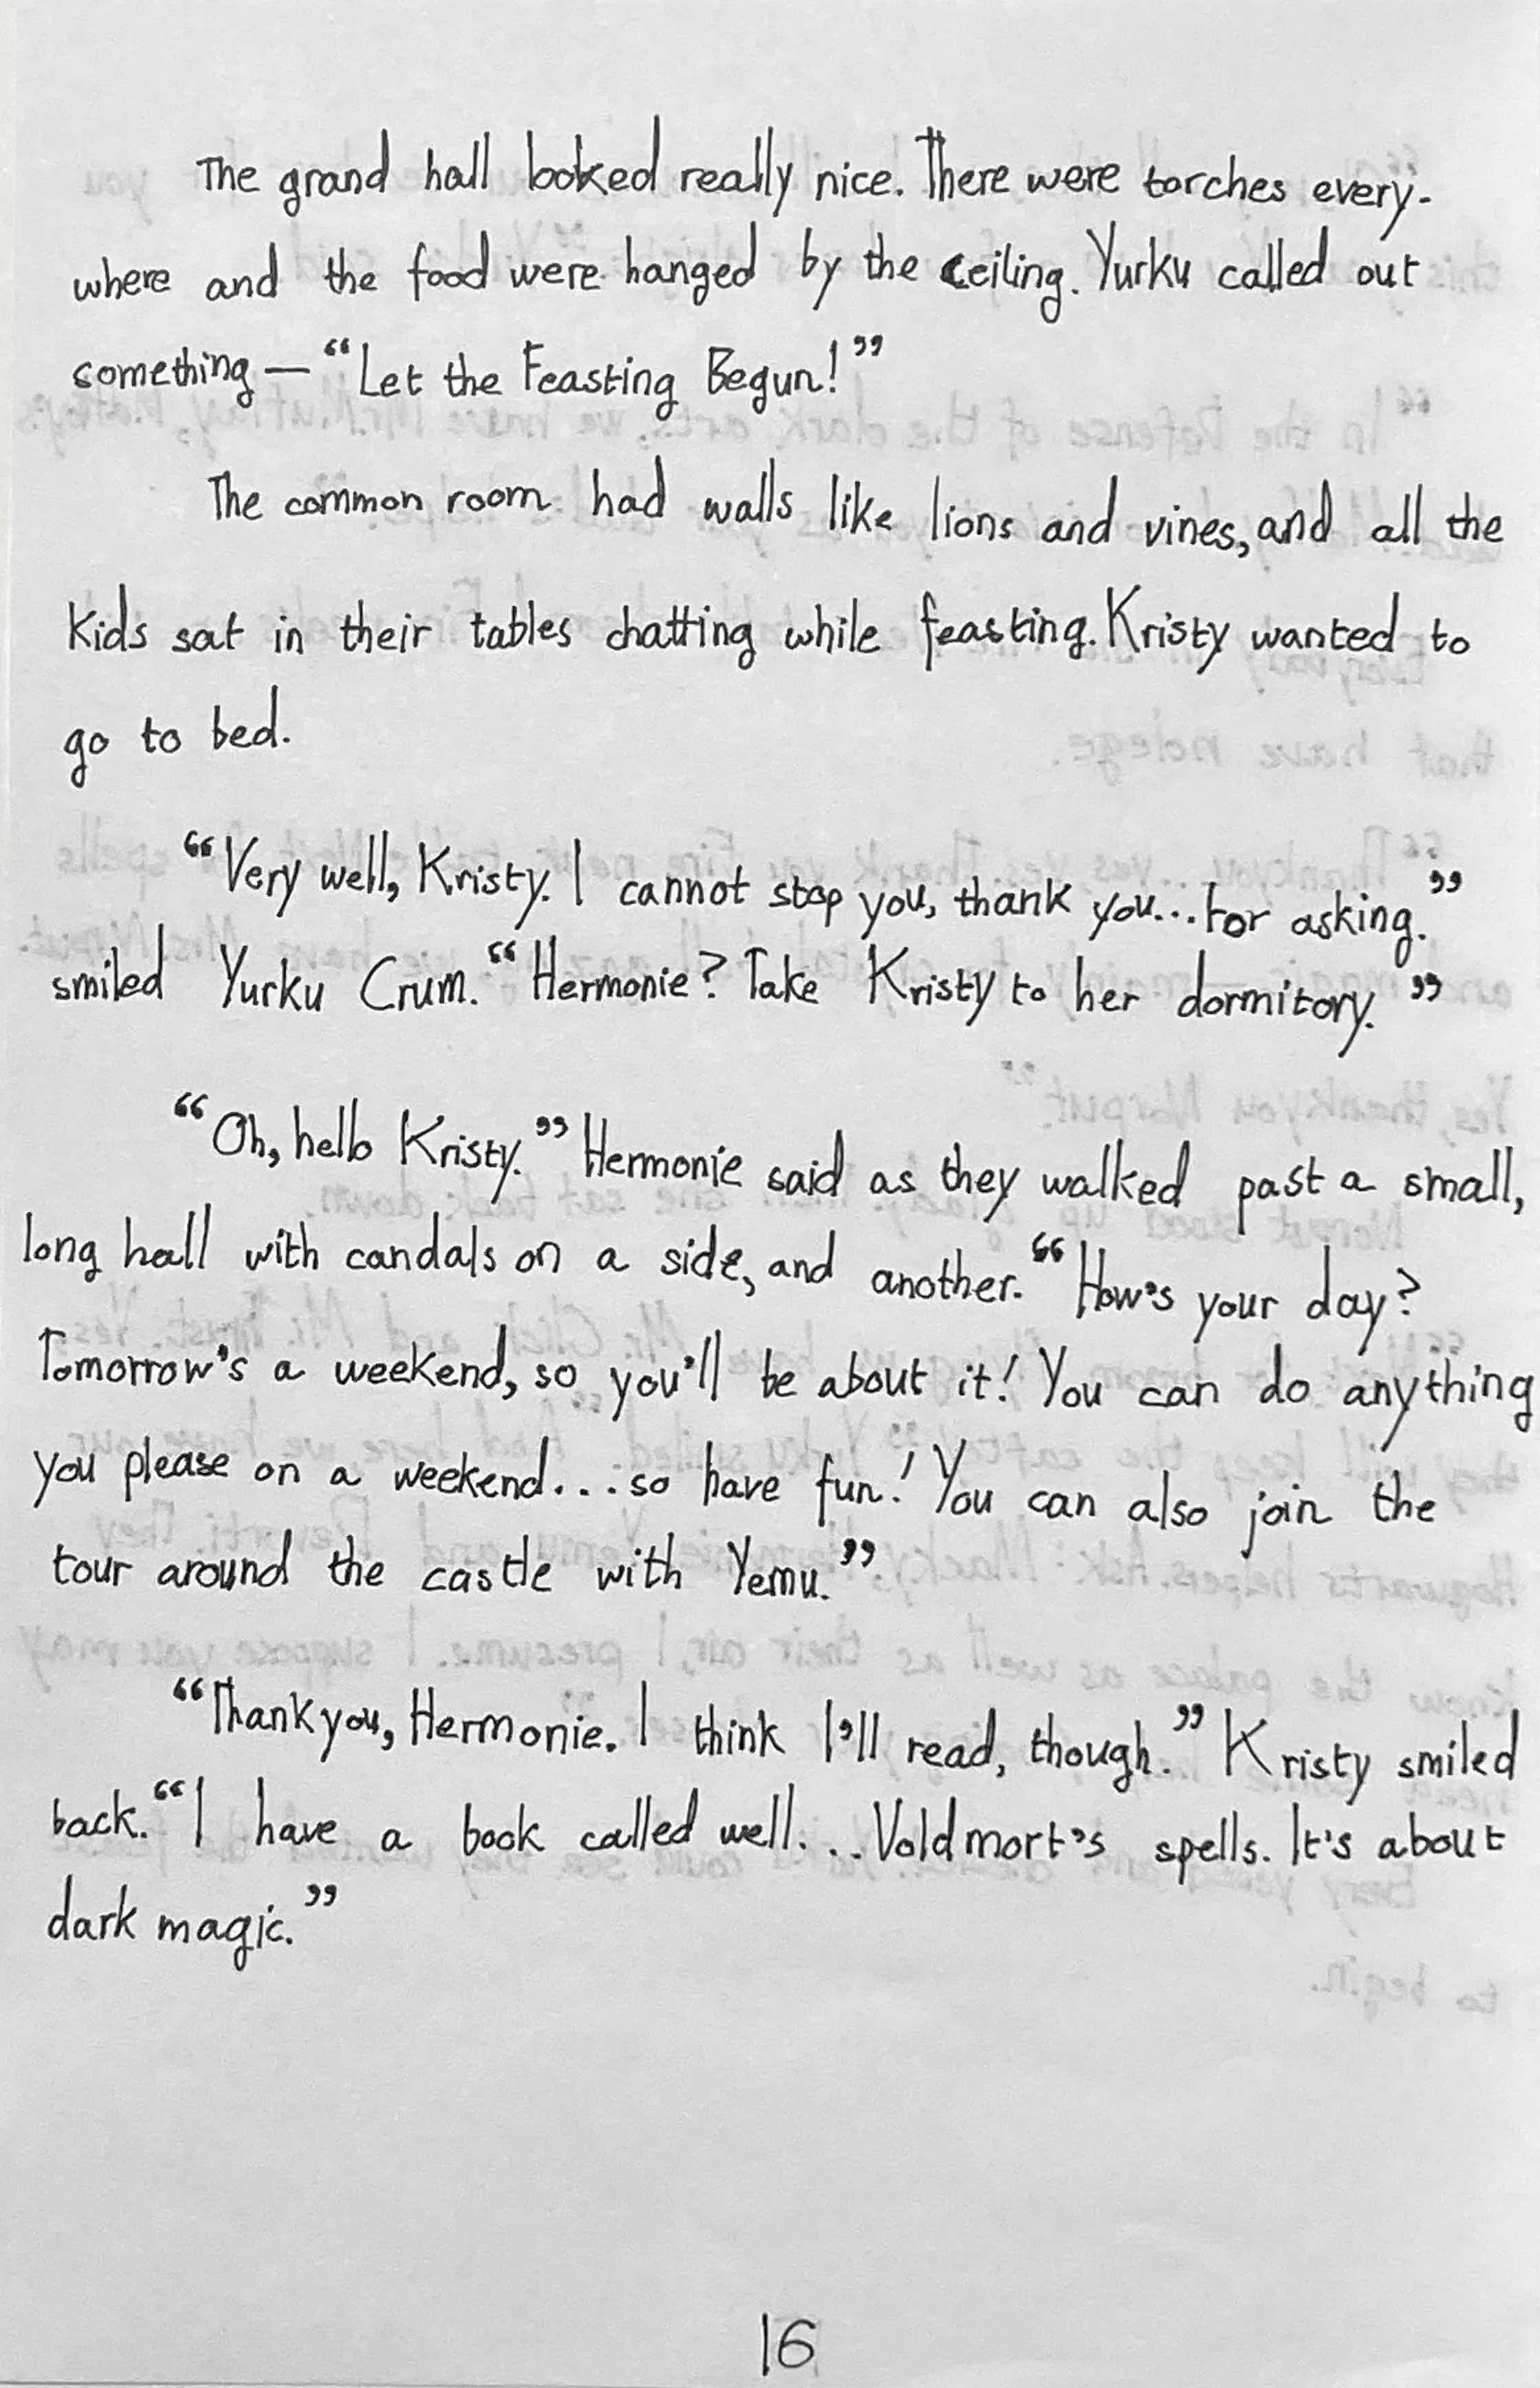 The grand hall looked really nice. There were torches every-
where and the food were hanged by the ceiling. Yurku called out
something — “Let the Feasting Begun!”
The common room had walls like lions and vines, and all the
kids sat in their tables chatting while feasting. Kristy wanted to
go to bed.
“Very well, Kristy. I cannot stop you, thank you... for asking.”
smiled Yurku Crum. “Hermonie? Take Kristy to her dormitory.”
“Oh, hello Kristy.” Hermonie said as they walked past a small,
long hall with candals on a side, and another. “How's your day?
Tomorrow's a weekend, so you'll be about it! You can do anything
you please on a weekend... so have fun! You can also join the
tour around the castle with Yemu.”
“Thank you, Hermonie. I think I'll read, though.” Kristy smiled
back. “I have a book called well... Voldmort's spells. It's about
dark magic.”
16